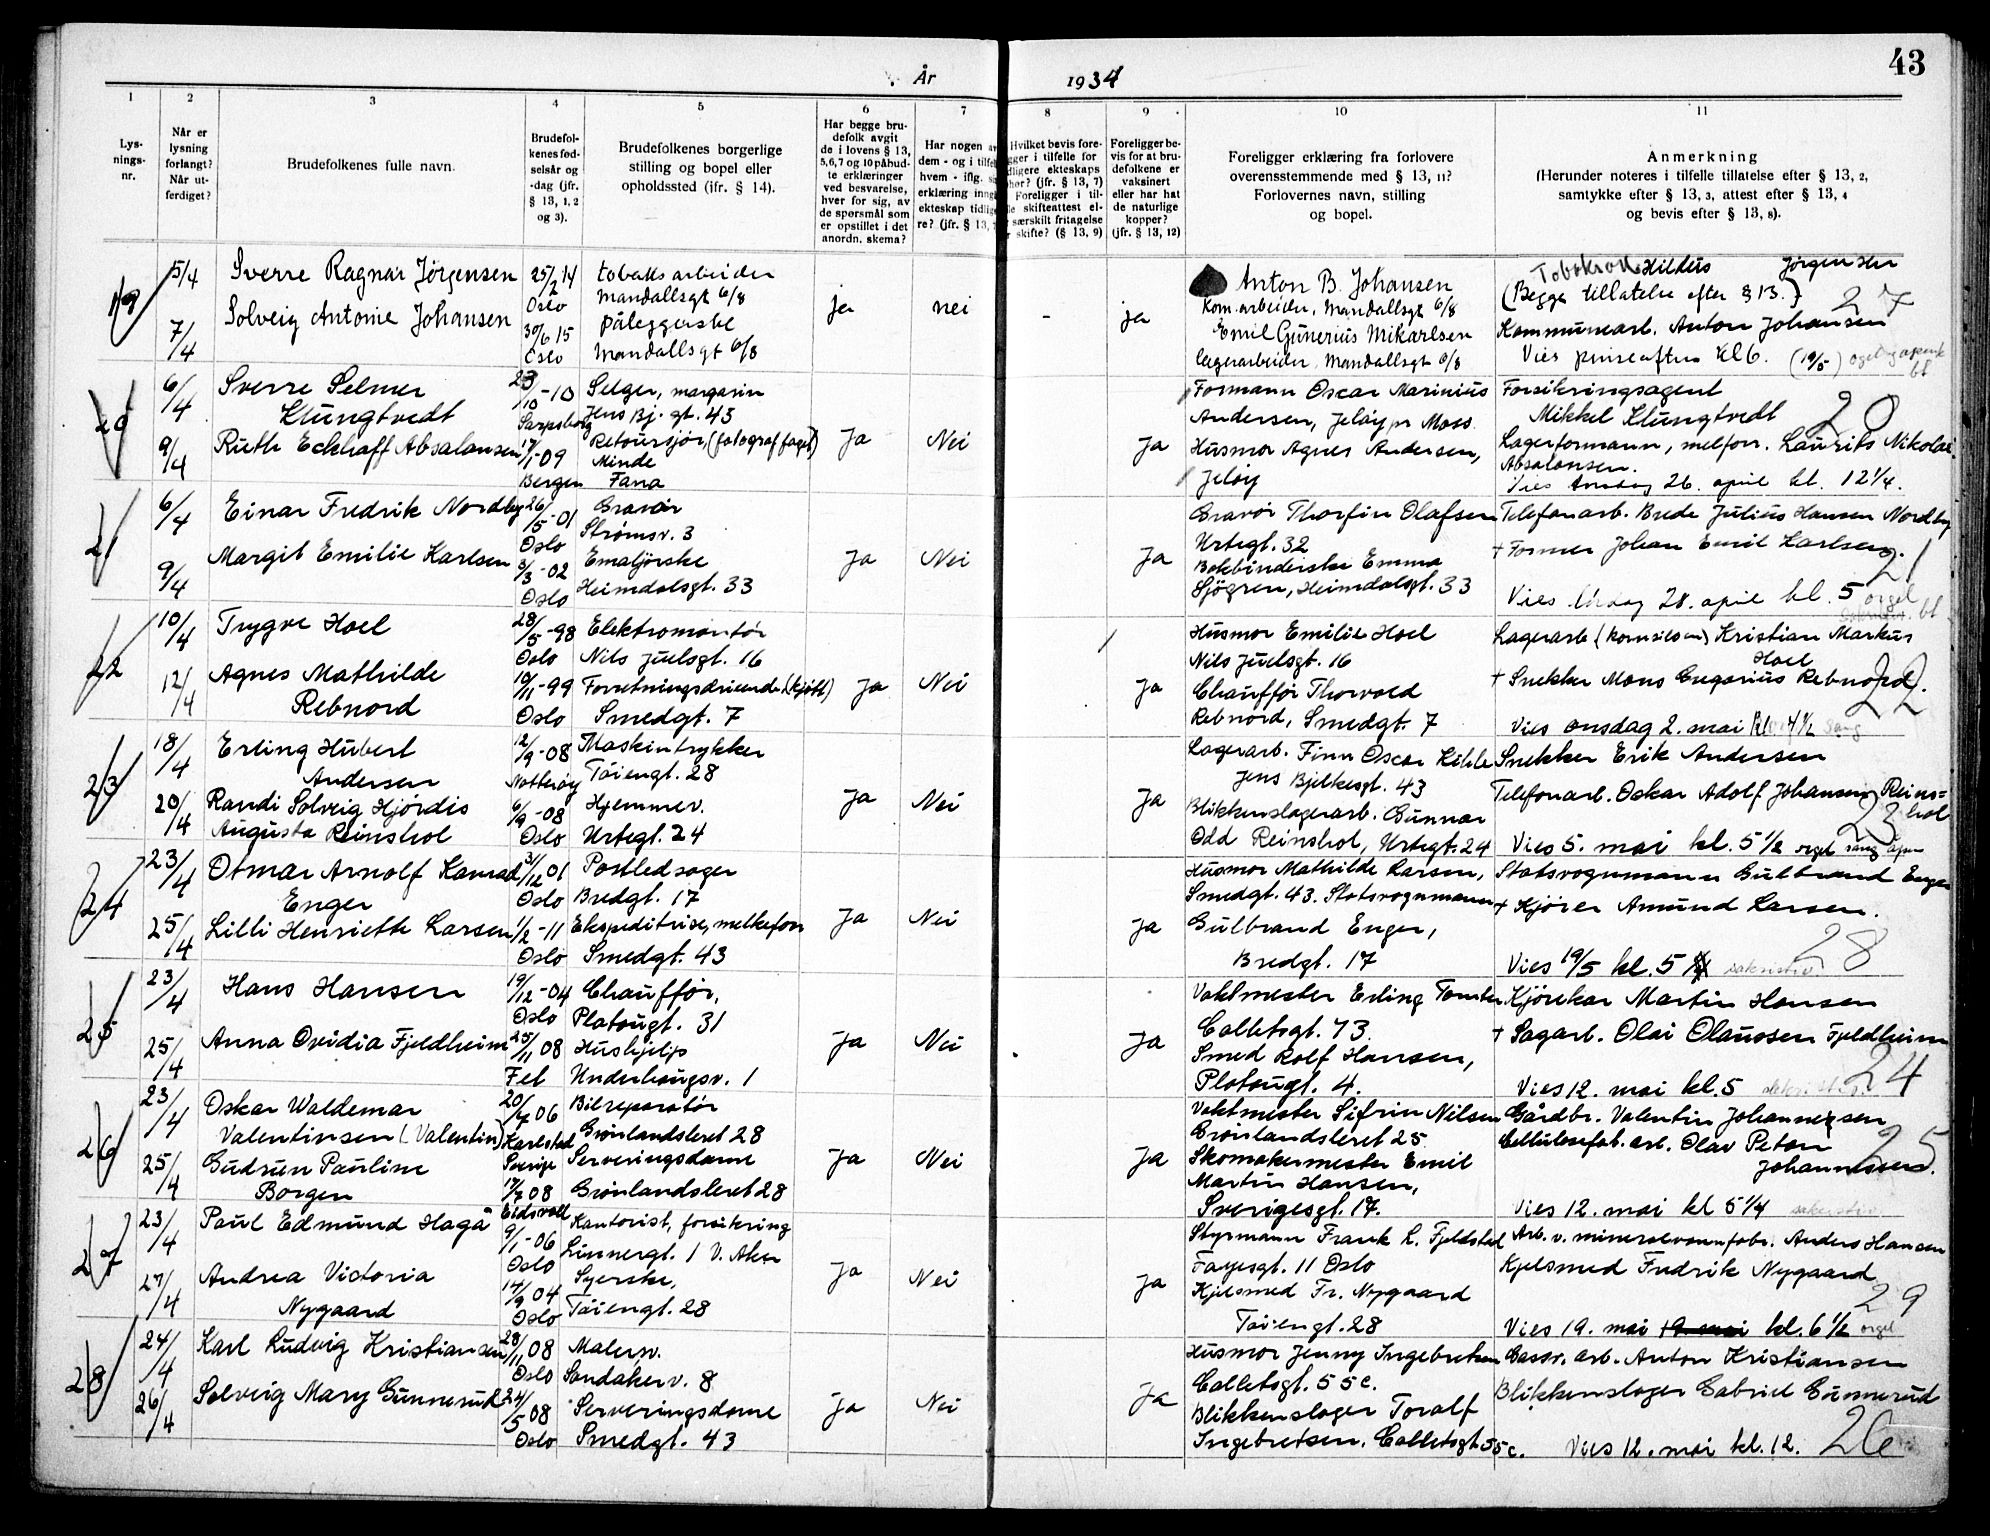 43
År 1934
1 2 3 4 5 6 7 8 9 10 11
Lys-
nings-
nr.
Når er
lysning
forlangt?
Når ut-
ferdiget?
Brudefolkenes fulle navn.
Brudefol-
kenes fød-
selsår og
-dag (jfr.
§ 13, 1, 2
og 3).
Brudefolkenes borgerlige
stilling og bopel eller
opholdssted (jfr. § 14).
Har begge bru-
defolk avgit
de i lovens § 13,
5,6,7 og 10 påbud-
te erklæringer
ved besvarelse,
hver for sig, av
de spørsmål som
er opstillet i det
anordn. skema?
Har nogen av
dem - og i tilfel
hvem - iflg.
erklæring inng
ekteskap tidlig
re? (jfr. § 13,
Hvilket bevis fore-
gger i tilfelle for
dligere ekteskaps
phør? (jfr. § 13, 7)
Foreligger i til-
le skifteattest el-
særskilt fritagelse
skifte? (§ 13, 9)
Foreligger be-
vis for at bru-
defolkene er
vaksinert
eller har hat
de naturlige
kopper?
(jfr. § 13, 12)
Foreligger erklæring fra forlovere
overensstemmende med § 13, 11?
Forlovernes navn, stilling
og bopel.
Anmerkning
(Herunder noteres i tilfelle tillatelse efter § 13, 2,
samtykke efter § 13, 3, attest efter § 13, 4
og bevis efter § 13, 8).
19
5/4
7/4
Sverre Ragnar Jørgensen
Solveig Antonie Johansen
25/2 14
Oslo
30/6 15
Oslo
tobaksarbeider
Mandallsgt 6/8
påleggerske
Mandallsgt 6/8
ja
nei
-
ja
Anton B. Johansen
Kom.arbeider, Mandallsgt 6/8
Emil Gunerius Mikarlsen
lagerarbeider, Mandallsgt 6/8
Hildus Jørgensen
(Begge tillatelse efter § 13.)
27
Kommunearb. Anton Johansen
Vies pinseaften kl 6. (19/5)
20
6/4
9/4
Sverre Selmer
Klungtvedt
Ruth Eckhoff Absalonsen
23/10-10
Sarpsborg
17/1-09
Bergen
Selger, margarin
Jens Bj. gt. 43
Retoursjør, (fotograffaget)
Minde
Fana
Ja
Nei
Ja
Formann Oscar Marinius
Andersen, Jeløy pr Moss.
Husmor Agnes Andersen,
Jeløy
Forsikringsagent
Mikkel Klungtvedt
20
Lagerformann, melforr. Laurits Nikolai
Absalonsen.
Vies torsdag 26. april kl. 12 1/4.
21
6/4
9/4
Einar Fredrik Nordby
Margit Emilie Karlsen
26/5-01
Oslo
3/3-02
Oslo
Gravør
Strømsv. 3
Emaljørske
Heimdalsgt. 33
Ja
Nei
Ja
Gravør Thorfin Olafsen
Urtegt. 32
Bokbinderske Emma
Sjøgren, Heimdalsgt. 33
Telefonarb. Brede Julius Hansen Nordby
+ Former Johan Emil Karlsen.
21
Vies lørdag 28. april kl. 5 orgel
22
10/4
12/4
Trygve Hoel
Agnes Mathilde
Rebnord
28/5-98
Oslo
10/11-99
Oslo
Elektromontør
Nils Juelsgt. 16
Forretningsdrivende (kjøtt)
Smedgt. 7
Ja
Nei
Ja
Husmor Emilie Hoel
Nils Juelsgt. 16
Chauffør Thorvald
Rebnord, Smedgt. 7
Lagerarb (kornsiloen) Kristian Markus
Hoel
+ Snekker Mons Gregorius Rebnord.
22
Vies onsdag 2. mai kl 4 1/2 sang
23
18/4
20/4
Erling Hubert
Andersen
Randi Solveig Hjørdis
Augusta Reinshol
12/9-08
Notterøy
6/9-08
Oslo
Maskintrykker
Tøiengt. 28
Hjemmev.
Urtegt. 24
Ja
Nei
Ja
Lagerarb. Finn Oscar Kihle
Jens Bjelkesgt. 43
Blikkenslagerarb. Gunnar
Odd Reinshol, Urtegt. 24
Snekker Erik Andersen
Telefonarb. Oskar Adolf Johansen Reins=
hol
23
Vies 5. mai kl. 5 1/2 orgel sang
24
23/4
25/4
Otmar Arnolf Konrad
Enger
Lilli Henriette Larsen
31/12 01
Oslo
1/2-11
Oslo
Postledsager
Bredgt. 17
Ekspeditrise, melkeforr
Smedgt. 43
Ja
Nei
Ja
Husmor Mathilde Larsen,
Smedgt. 43. Statsvognmann
Gulbrand Enger,
Bredgt. 17
Statsvognmann Gulbrand Enger
+ Kjører Amund Larsen.
28
Vies 19/5 kl. 5 sakristiet
25
23/4
25/4
Hans Hansen
Anna Ovidia Fjeldheim
19/12-04
Oslo
25/11 08
Fet
Chauffør,
Platougt. 31
Hushjelp
Underhaugsv. 1
Ja
Nei
Ja
Vaktmester Erling Tomter
Colletsgt. 73.
Smed Rolf Hansen,
Platougt. 4.
Kjørekar Martin Hansen
+ Sagarb. Olai Olaussen Fjeldheim
24
Vies 12. mai kl. 5
26
23/4
25/4
Oskar Waldemar
Valentinsen (Valentin)
Gudrun Pauline
Borgen
Karlstad
Sverige
17/7 08
Eidsvoll
Bilreparatør
Grønlandsleret 28
Serveringsdame
Grønlandsleret 28
Ja
Nei
Ja
Vaktmester Sifrin Nilsen
Grønlandsleret 25.
Skomakermester Emil
Martin Hansen,
Sverigesgt. 17.
Gårdbr. Valentin Johannessen
Cellulosefab. arb. Olav Peton
Johannessen.
25
Vies 12. mai kl 5 1/4 sakristiet
27
23/4
27/4
Paul Edmund Hagå
Andrea Victoria
Nygaard
9/1-06
Oslo
14/9 04
Oslo
Kontorist, forsikring
Linnergt. 1 V. Aker
Syerske,
Tøiengt. 28
Ja
Nei
Ja
Styrmann Frank L. Fjeldstad
Fayesgt. 11 Oslo
Kjelsmed Fr. Nygaard
Tøiengt. 28
Arb. v. mineralvannfabr. Anders Hansen
Kjelsmed Fredrik Nygaard
29
Vies 19. mai 19 mai kl. 6 1/2 orgel
28
24/4
26/4
Karl Ludvig Kristiansen
Solveig Mary Gunnerud
28/11 08
Oslo
24/5 08
Oslo
Malersv.
Sandakerv. 8
Serveringsdame
Smedgt. 43
Ja
Nei
Ja
Husmor Jenny Ingebretsen
Colletsgt. 55 c.
Blikkenslager Toralf
Ingebretsen. Colletsgt 55 c.
Gassv. arb. Anton Kristiansen
Blikkenslager Gabriel Gunnerud
Vies 12. mai kl. 12.
26